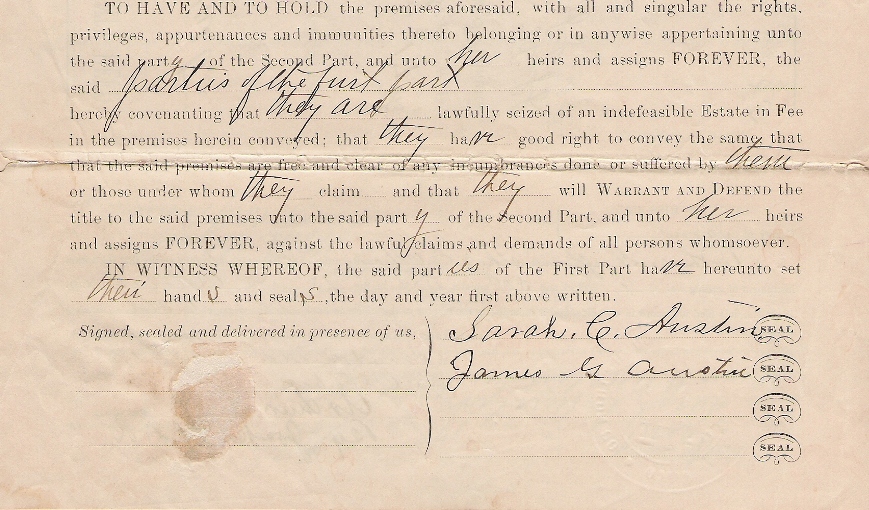 TO HAVE AND TO HOLD the premises aforesaid, with all and singular the rights,
privileges, appurtenances and immunities thereto belonging or in anywise appertaining unto
the said party of the Second Part, and unto her heirs and assigns FOREVER, the
said parties of the first part
hereby covenanting that they are lawfully seized of an indefeasible Estate in Fee
in the premises herein conveyed; that they have good right to convey the same; that
that the said premises are free and clear of any incumbrances done or suffered by them
or those under whom they claim and that they will WARRANT AND DEFEND the
title to the said premises unto the said party of the Second Part, and unto her heirs
and assigns FOREVER, against the lawful claims and demands of all persons whomsoever.
IN WITNESS WHEREOF, the said parties of the First Part have hereunto set
their hands and seals, the day and year first above written.
Signed, sealed and delivered in presence of us,
Sarah. C. Austin SEAL
James G Austin SEAL
SEAL
SEAL